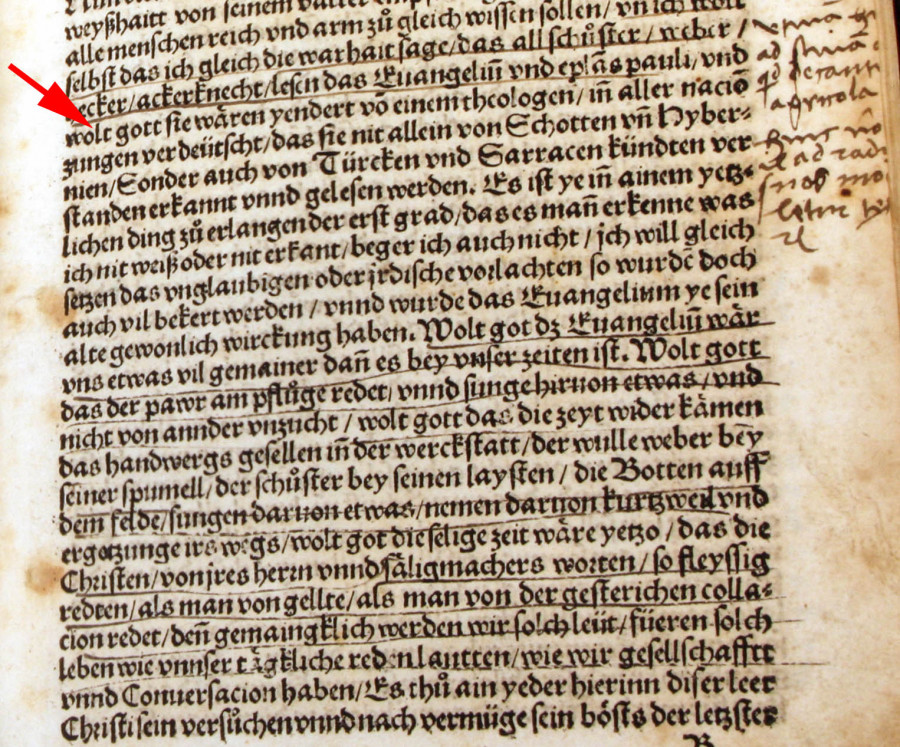 weyßhaitt von seinem vatter
alle menschen reich vnd arm zů gleich wissen sollen/ vn̄ ich wolt
selbst das ich gleich die warhait sage/das all schůster/ weber/
ecker/ackerknecht/lesen das Euangeliū vnd eplās pauli/vnd
wolt gott sie wären yendert vō einem theologen/ in̄ aller naciō
zungen verdeütscht/das sie nit allein von Schotten vn̄ Hyber-
nien/Sonder auch von Türcken vnd Sarracen kündten ver
standen erkannt vnnd gelesen werden. Es ist ye in̄ ainem yetz-
lichen ding zů erlangen der erst grad/das es man̄ erkenne was
ich nit weiß oder nit erkant/beger ich auch nicht/ jch will gleich
setzen das vnglaubigen oder jrdische verlachten so wurdē doch
auch vil bekert werden/ vnnd wurde das Euangelium ye sein
alte gewonlich wirckung haben. Wolt got dz Euangeliū wär
vns etwas vil gemainer dan̄ es bey vnser zeiten ist. Wolt gott
das der pawr am pflůge redet/ vnnd sunge hiruon etwas/vnd
nicht von annder vnzucht/ wolt gott das die zeyt wider kämen
das handwergs gesellen in̄ der werckstatt/der wulle weber bey
seiner spumell/der schůster bey seinen laysten/ die Botten auff
dem felde/sungen daruon etwas/nemen daruon kurtzweil vnd
ergotzunge irs wegs/wolt got die selige zeit wäre yetzo/das die
Christen/von jres herrn vnnd säligmachers worten/so fleyssig
redten/als man von gellte/als man von der gesterichen colla-
cion redet/den̄ gemaingklich werden wir solch leüt/füeren solch
leben wie vnnser tägkliche reden lautten/wie wir gesellschafftt
vnnd Conuersacion haben/Es thů ain yeder hierinn diser leer
Christi sein versůchen vnnd nach vermüge sein bösts der letzster
B